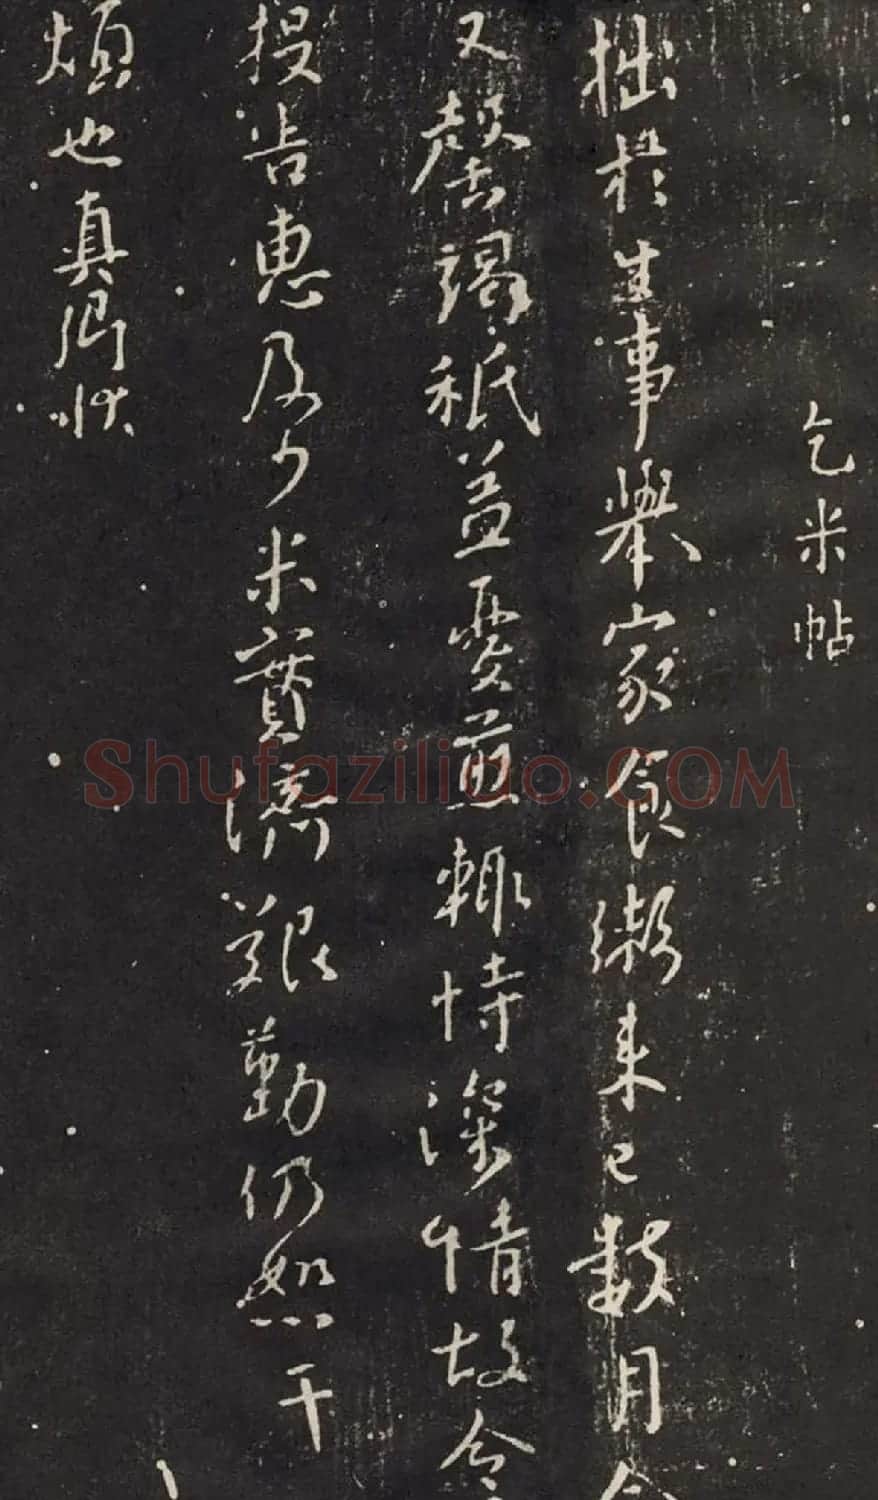 乞米帖
拙於生事舉家食粥來已數月今
又罄竭秖益憂煎輒恃深情故令
投告惠及少米實濟艱勤仍恕干
煩也真卿狀
Shufaziliao.COM